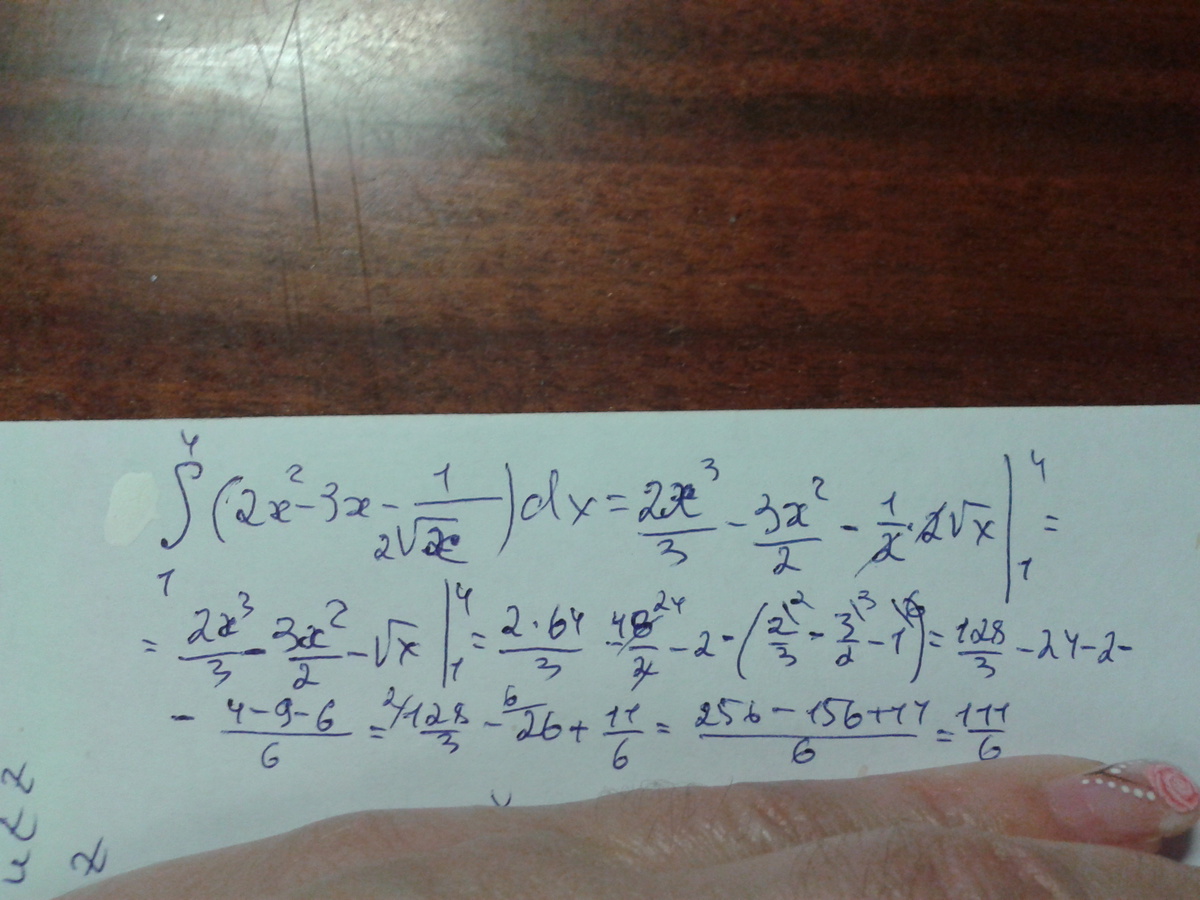 ∫₁⁴ (2x² - 3x - 1/(2√x)) dx = 2x³/3 - 3x²/2 - 1/2 · 2√x |₁⁴ =
= 2x³/3 - 3x²/2 - √x |₁⁴ = 2·64/3 - 48/2 24 - 2 - (2/3 \2 - 3/2 \3 - 1 \6) = 128/3 - 24 - 2 -
- (4-9-6)/6 = 2/ 128/3 - 6/ 26 + 11/6 = (256 - 156 + 11)/6 = 111/6